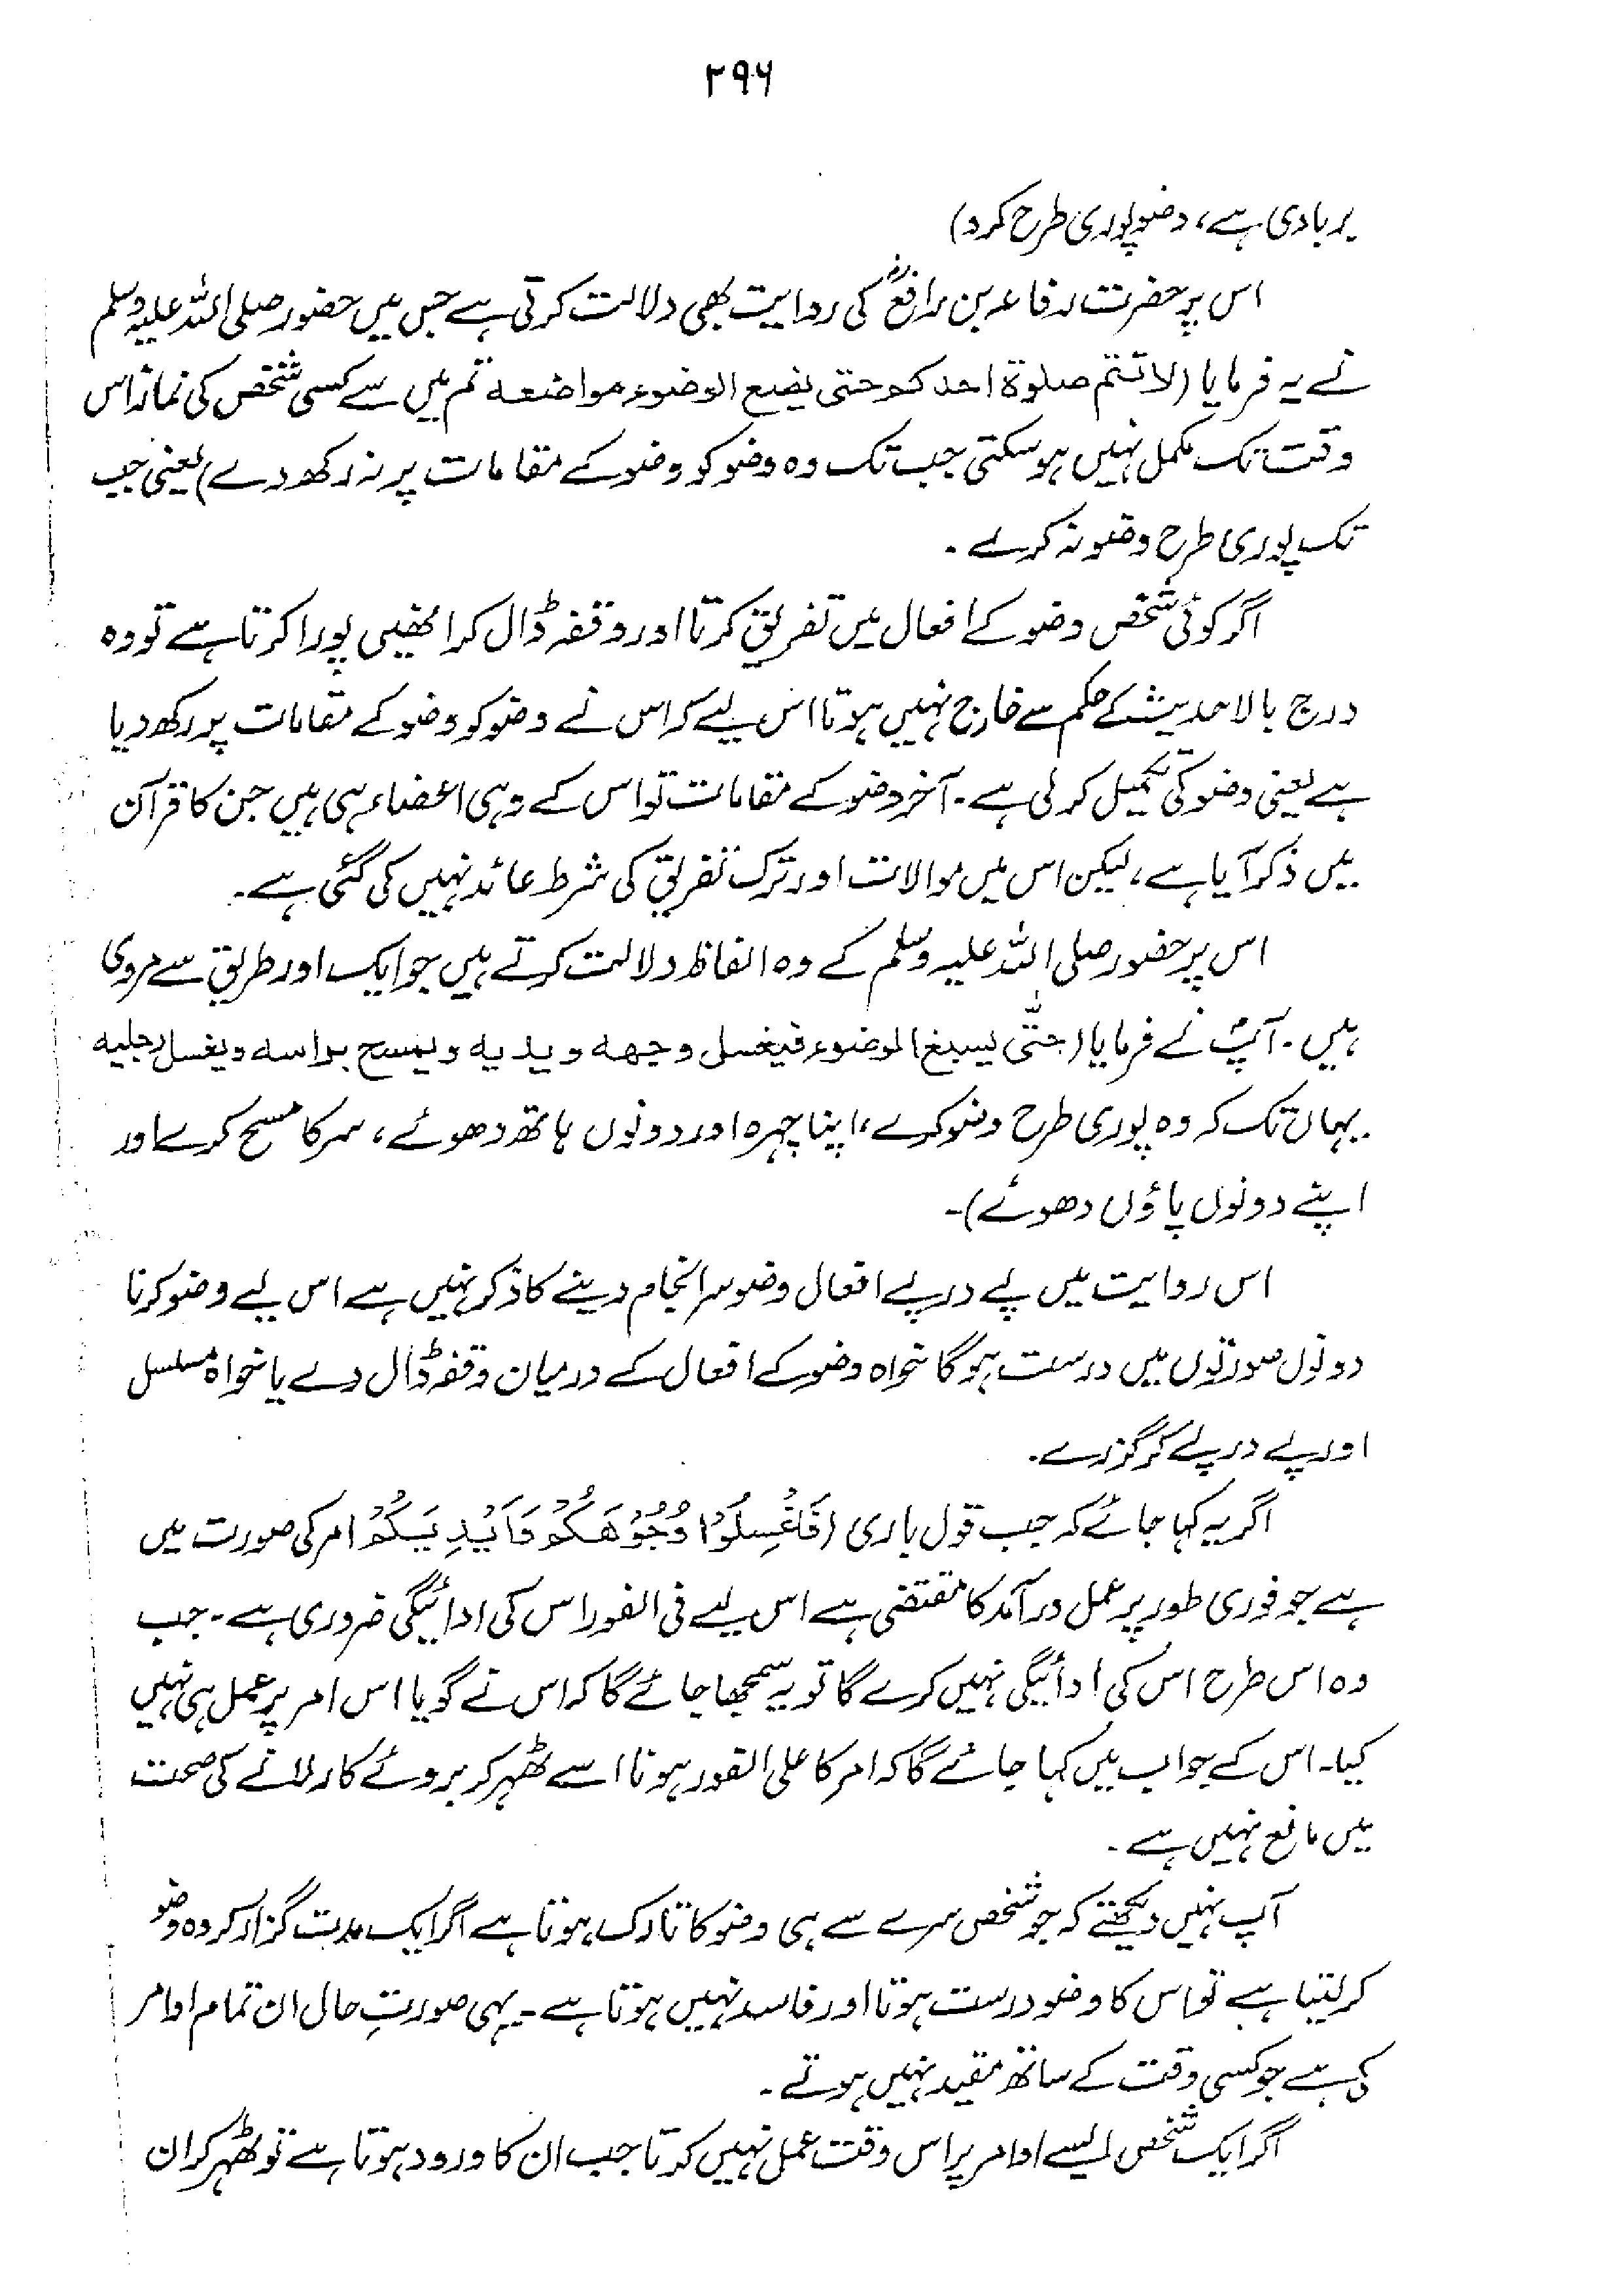 ۲۹۶
بربادی ہے، وضو پوری طرح کرو)
اس پر حضرت رفاعہ بن رافعؓ کی روایت بھی دلالت کرتی ہے جس میں حضور صلی اللہ علیہ وسلم
نے یہ فرمایا (لا تتم صلوۃ احدکم حتی یضع الوضوء مواضعہ تم میں سے کسی شخص کی نماز اس
وقت تک مکمل نہیں ہو سکتی جب تک وہ وضو کو وضو کے مقامات پر نہ رکھ دے) یعنی جب
تک پوری طرح وضو نہ کرلے۔
اگر کوئی شخص وضو کے افعال میں تفریق کرتا اور وقفہ ڈال کر انھیں پورا کرتا ہے تو وہ
درج بالا حدیث کے حکم سے خارج نہیں ہوتا اس لیے کہ اس نے وضو کو وضو کے مقامات پر رکھ دیا
ہے یعنی وضو کی تکمیل کرلی ہے۔ آخر وضو کے مقامات تو اس کے وہی اعضاء ہی ہیں جن کا قرآن
میں ذکر آیا ہے، لیکن اس میں موالات اور ترک تفریق کی شرط عائد نہیں کی گئی ہے۔
اس پر حضور صلی اللہ علیہ وسلم کے وہ الفاظ دلالت کرتے ہیں جو ایک اور طریق سے مروی
ہیں۔ آپؐ نے فرمایا (حتّٰی یسبغ الوضوء فیغسل وجھہ ویدیہ ویمسح براسہ ویغسل رجلیہ
یہاں تک کہ وہ پوری طرح وضو کرے، اپنا چہرہ اور دونوں ہاتھ دھوئے، سر کا مسح کرے اور
اپنے دونوں پاؤں دھوئے)۔
اس روایت میں پے در پے افعال وضو سرانجام دینے کا ذکر نہیں ہے اس لیے وضو کرنا
دونوں صورتوں میں درست ہوگا خواہ وضو کے افعال کے درمیان وقفہ ڈال دے یا خواہ مسلسل
اور پے در پے کر گزرے۔
اگر یہ کہا جائے کہ جب قول باری (فَاغْسِلُوْا وُجُوْهَكُمْ وَاَيْدِيَكُمْ امر کی صورت میں
ہے جو فوری طور پر عمل درآمد کا مقتضی ہے اس لیے فی الفور اس کی ادائیگی ضروری ہے۔ جب
وہ اس طرح اس کی ادائیگی نہیں کرے گا تو یہ سمجھا جائے گا کہ اس نے گویا اس امر پر عمل ہی نہیں
کیا۔ اس کے جواب میں کہا جائے گا کہ امر کا علی الفور ہونا اسے ٹھہر کر بروئے کار لانے کی صحت
میں مانع نہیں ہے۔
آپ نہیں دیکھتے کہ جو شخص سرے سے ہی وضو کا تارک ہوتا ہے اگر ایک مدت گزار کر وہ وضو
کرلیتا ہے تو اس کا وضو درست ہوتا اور فاسد نہیں ہوتا ہے۔ یہی صورتِ حال ان تمام اوامر
کی ہے جو کسی وقت کے ساتھ مقید نہیں ہوتے۔
اگر ایک شخص ایسے اوامر پر اس وقت عمل نہیں کرتا جب ان کا ورود ہوتا ہے تو ٹھہر کر ان